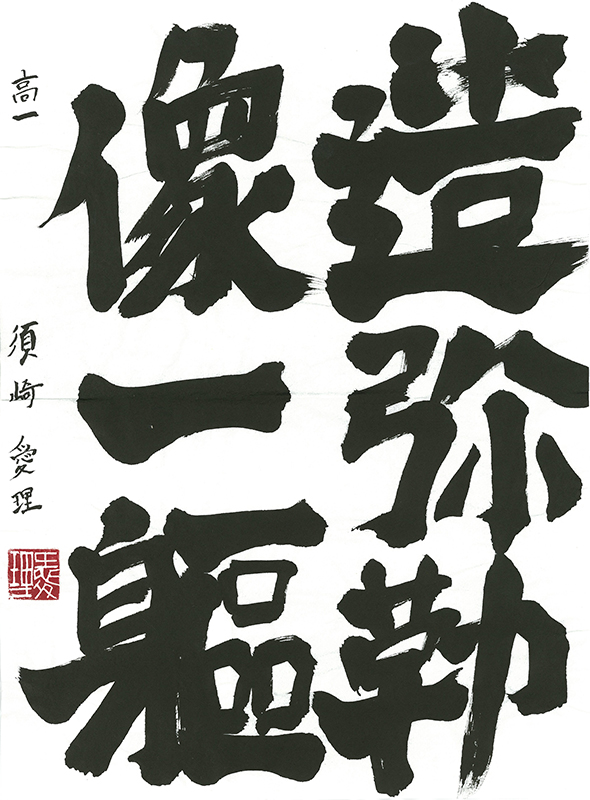 造弥勒
像一軀
高一 須崎愛理
愛理